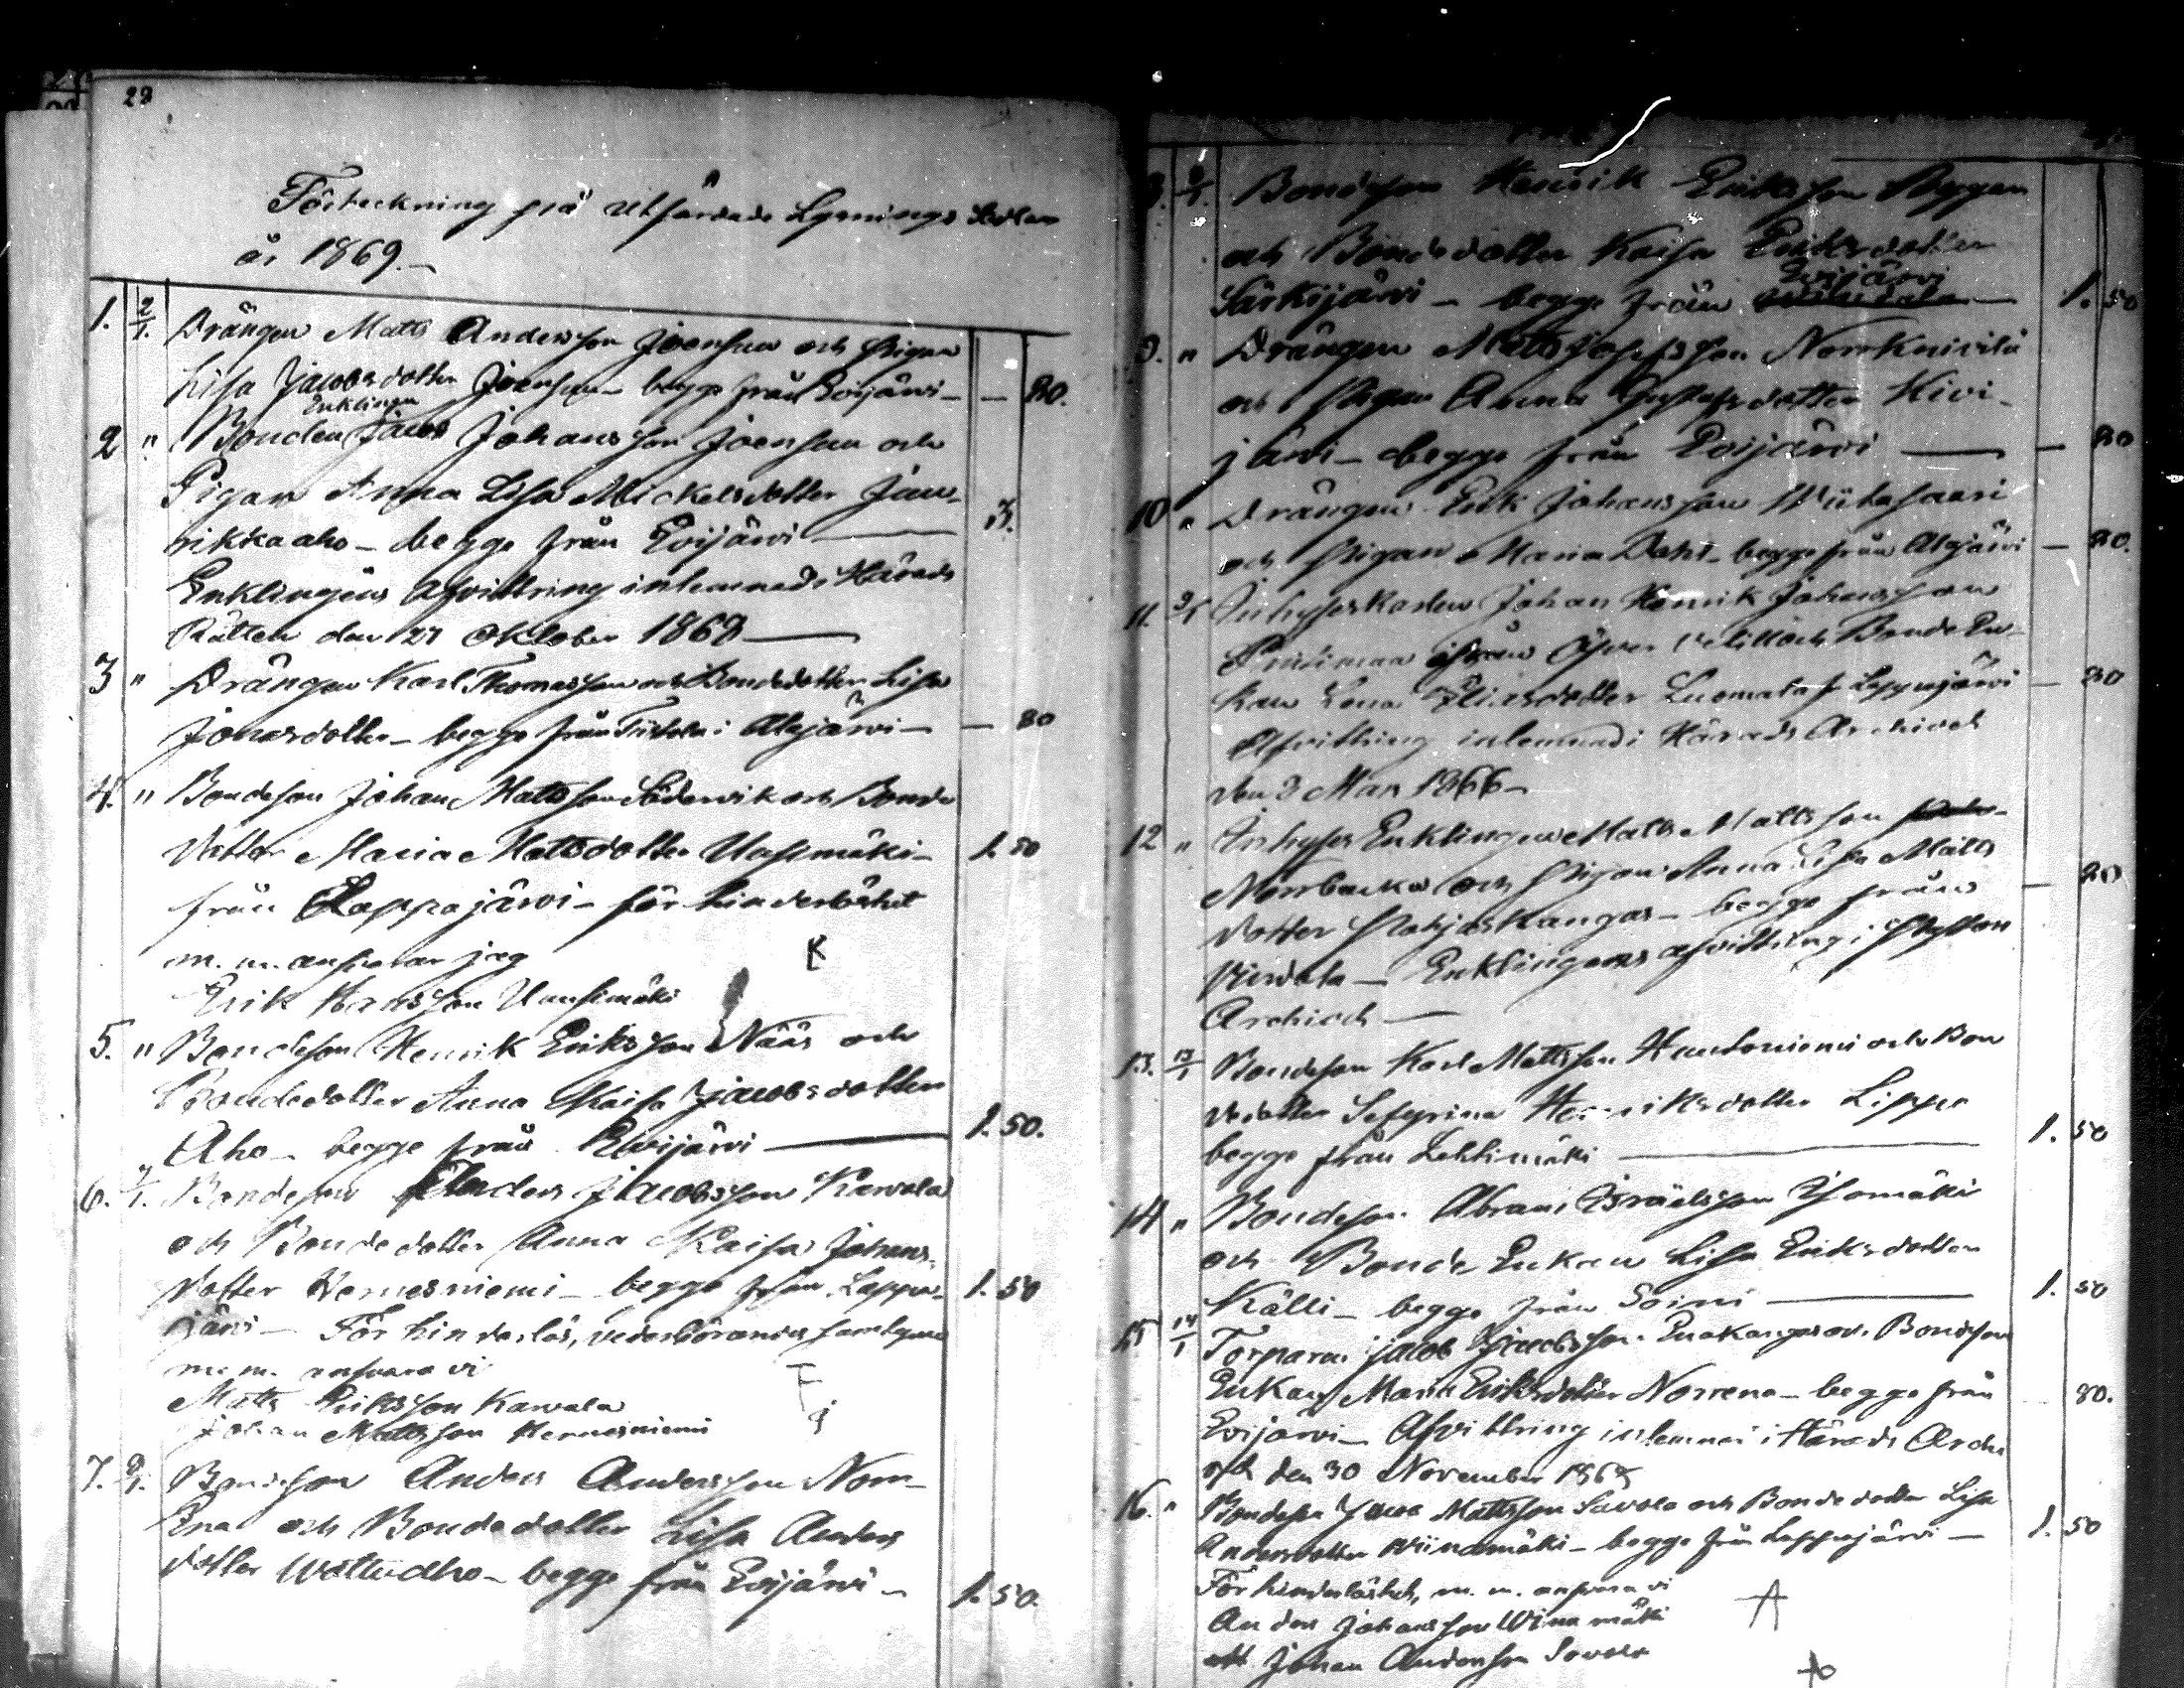 28
Förteckning på utfärdade Lysnings Sedlar
år 1869.
1. 2/1. Drängen Matts Andersson Joensuu och Pigan
Lisa Jacobsdotter Joensuu begge från Evijärvi — — 80.
Enklingen
2 " Bonden Jacob Johansson Joensuu och
Pigan Anna Lisa Mickelsdotter
begge från Evijärvi — 3.
Enklingens afvittring inlemnad i Härads
Rätten den 27 Oktober 1868 —
3 " Drängen Karl Thomasson och Bondedotter Lisa
Jonasdotter — begge från i Alajärvi — — 80
4. " Bondeson Johan Mattsson Södervik och Bonde
dotter Maria Mattsdotter Uusimäki — 1. 50
från Lappajärvi — för hinderlöshet
m. m. ansvarar jag
Erik Hansson Uusimäki
5. " Bondeson Henrik Eriksson Nääs och
Bondedotter Anna Kaisa Jacobsdotter
Aho — begge från Evijärvi — 1. 50.
6. Bondeson Anders Jacobsson Kawala
och Bondedotter Anna Kaisa Johans-
dotter Hernesniemi — begge från Lappa- 1. 50
järvi — För hinderlös,
m. m. ansvara vi
Matts Eriksson Kawala
Johan Mattsson Hernesniemi
7. 9/1. Bondeson Anders Andersson Norr-
Ena och Bondedotter Lisa Anders
dotter — begge från Evijärvi — 1. 50.
Bondeson Henrik Eriksson Byggar
och Bondedotter Kaisa Eriksdotter
Evijärvi
Särkijärvi — begge från — 1. 50
9. " Drängen Matts Josefsson
och Pigan Anna Gustafsdotter Kivi-
järvi — begge från Evijärvi — — 80
10 " Drängen Erik Johansson Wiitasaari
och Pigan Maria Dahl — begge från Alajärvi — 80.
11. 9/1 Inhyseskarlen Johan Henrik Johansson
från Öfver och Bonde En-
kan Lena Eliasdotter Luomala f. Lappajärvi — 80
Afvittring inlemnad i Härads Archivet
den 3 Mars 1866 —
12 " Inhyses Enklingen Matts Mattsson
Norrbacka och Pigan Anna Lisa Matts
dotter Pohjaskangas — begge från — 80
Vindala — Enklingens afvittring i
Archivet —
13. 13/1 Bondeson Karl Mattsson Hautaniemi och Bon
dedotter Sefyrina Henriksdotter Lippo
begge från Lehtimäki — 1. 50
14 " Bondeson Abram Israelsson Isomäki
och Bonde Enkan Lisa Eriksdotter
Källi — begge från Soini — 1. 50
15 14/1 Torparen Jacob Jacobsson Enakangas och Bondeson
Enkan Maria Eriksdotter Norrena — begge från 80.
Evijärvi — Afvittring inlemnad i Härads Archi
den 30 November
16. " Bondeson Jacob Mattsson Savola och Bondedotter Lisa
Andersdotter Wiinamäki — begge från Lappajärvi — 1. 50
För hinderlöshet, m. m. ansvara vi
Anders Johansson Winamäki
Johan Andersson Savola